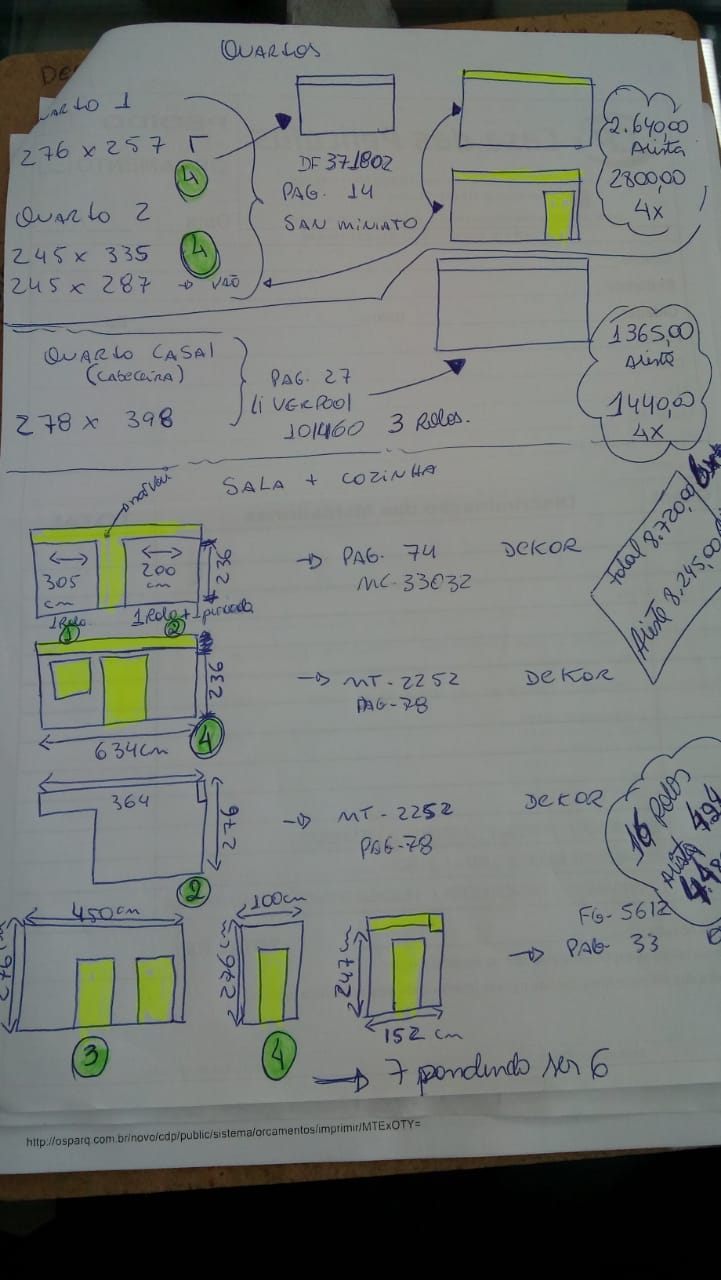 QUARTOS
QUARTO 1
276 x 257
4
QUARTO 2
245 x 335
4
245 x 287 → VÃO
DF 371802
PAG. 14
SAN MINIATO
2.640,00
Avista
2800,00
4x
QUARTO CASAL
(CABECEIRA)
278 x 398
PAG. 27
LIVERPOOL
101460 3 Rolos.
1365,00
Avista
1440,00
4x
SALA + COZINHA
305
cm
200
cm
236
1 Rolo
1 Rolo + 1 puxada
1
2
→ PAG. 74 DEKOR
MC-33032
total 8.720,00
Avista 8.245,00
236
634cm
4
→ MT-2252 DEKOR
PAG-78
364
276
2
→ MT-2252 DEKOR
PAG-78
16 Rolos
Avista
450cm
276
3
100cm
276cm
4
247cm
152 cm
FG-5612
→ PAG- 33
→ 7 pondendo ser 6
http://osparq.com.br/novo/cdp/public/sistema/orcamentos/imprimir/MTExOTY=